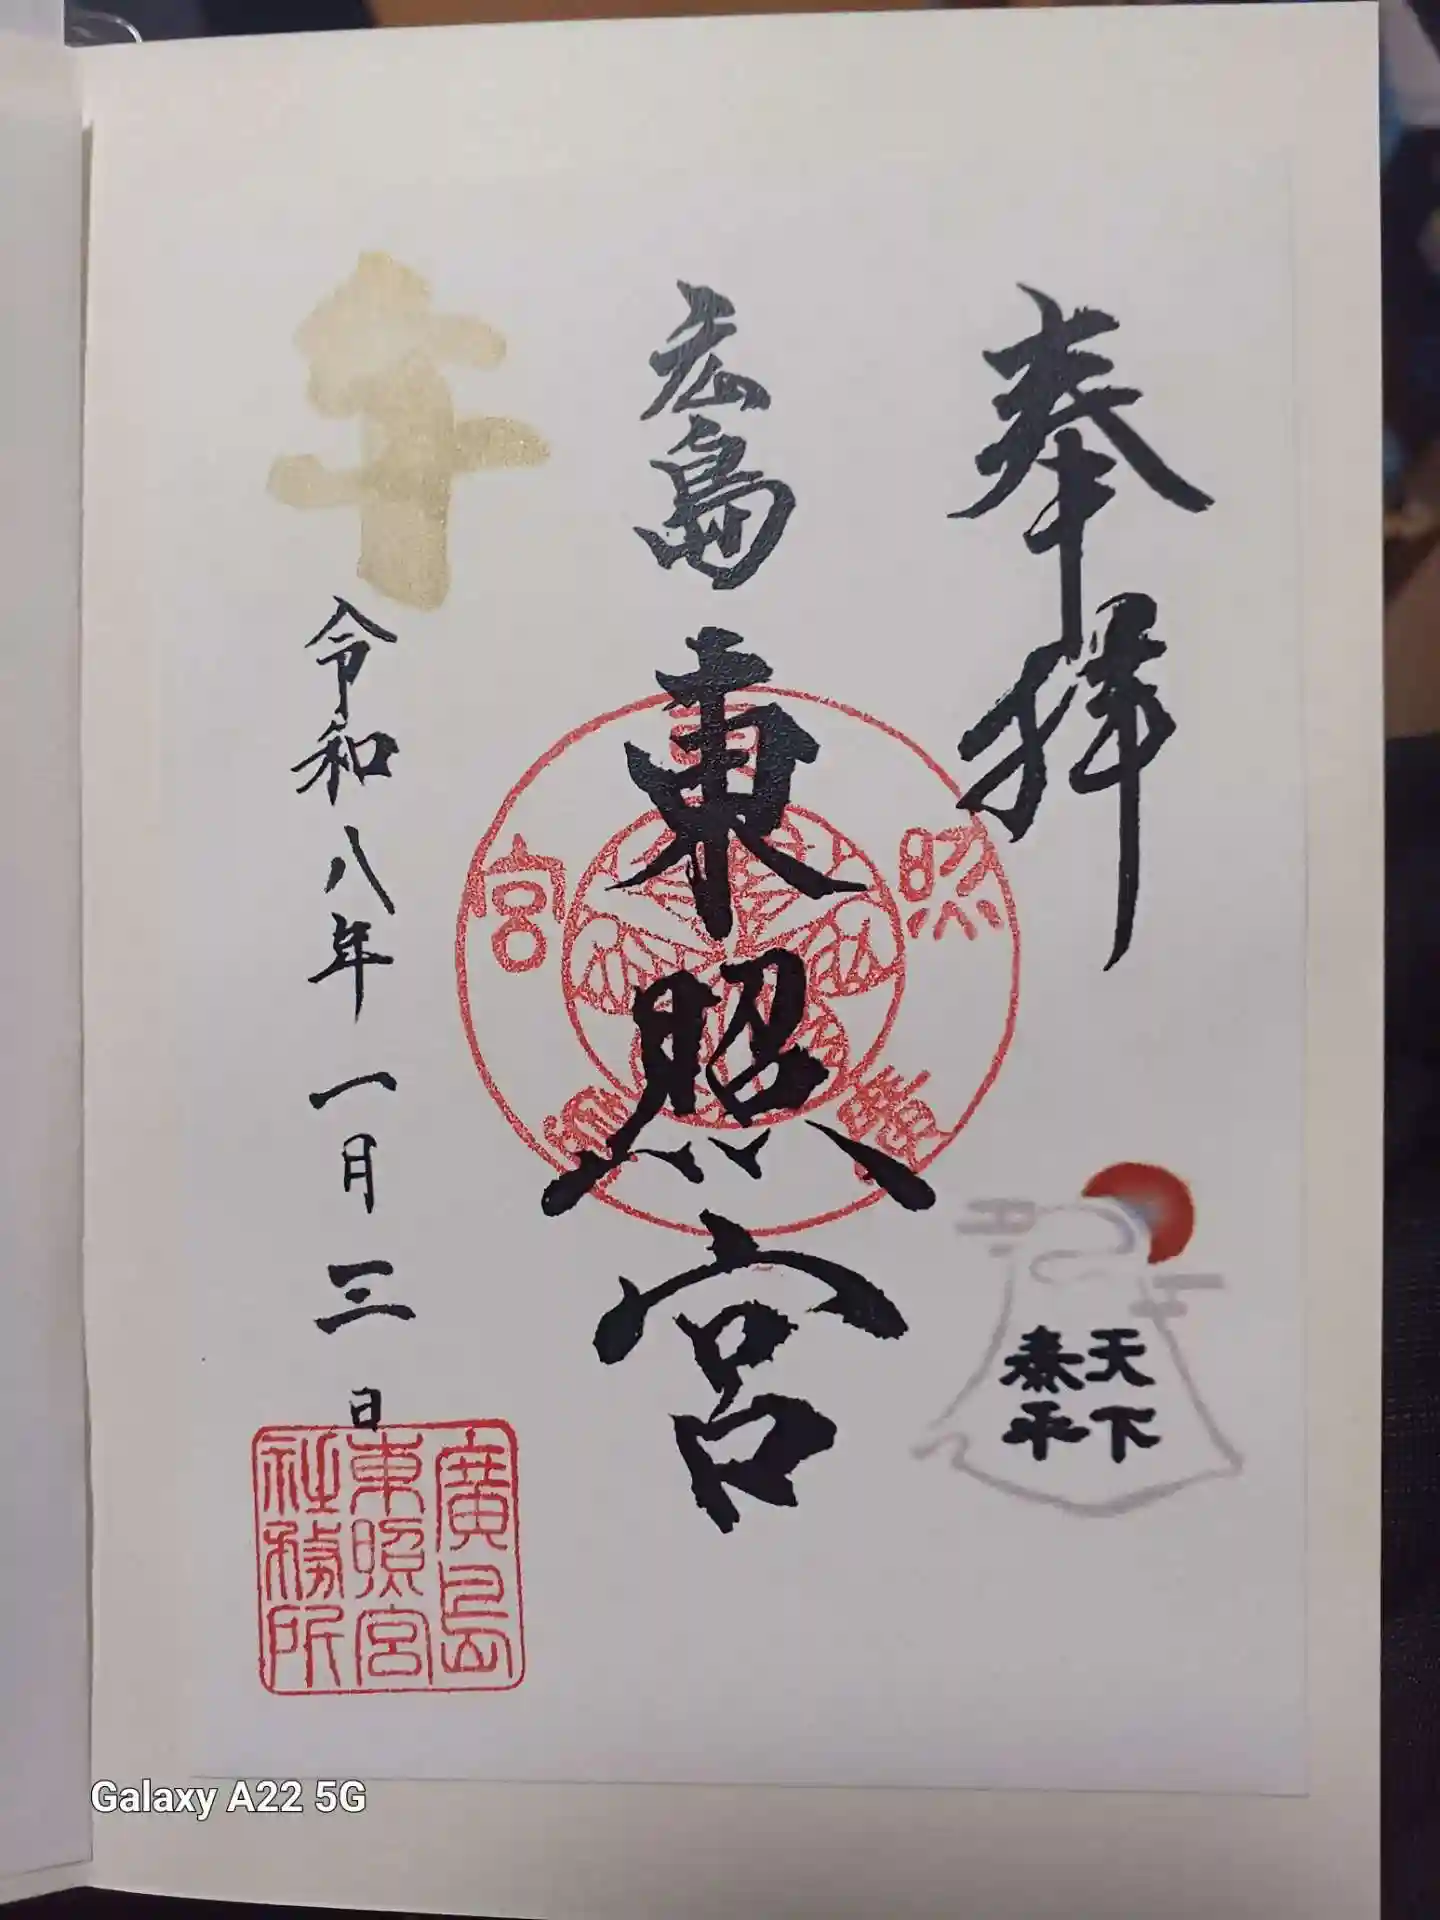 奉拝
天下
泰平
広島
東照宮
東
照
宮
午
令和八年一月三日
廣島
東照宮
社務所
Galaxy A22 5G